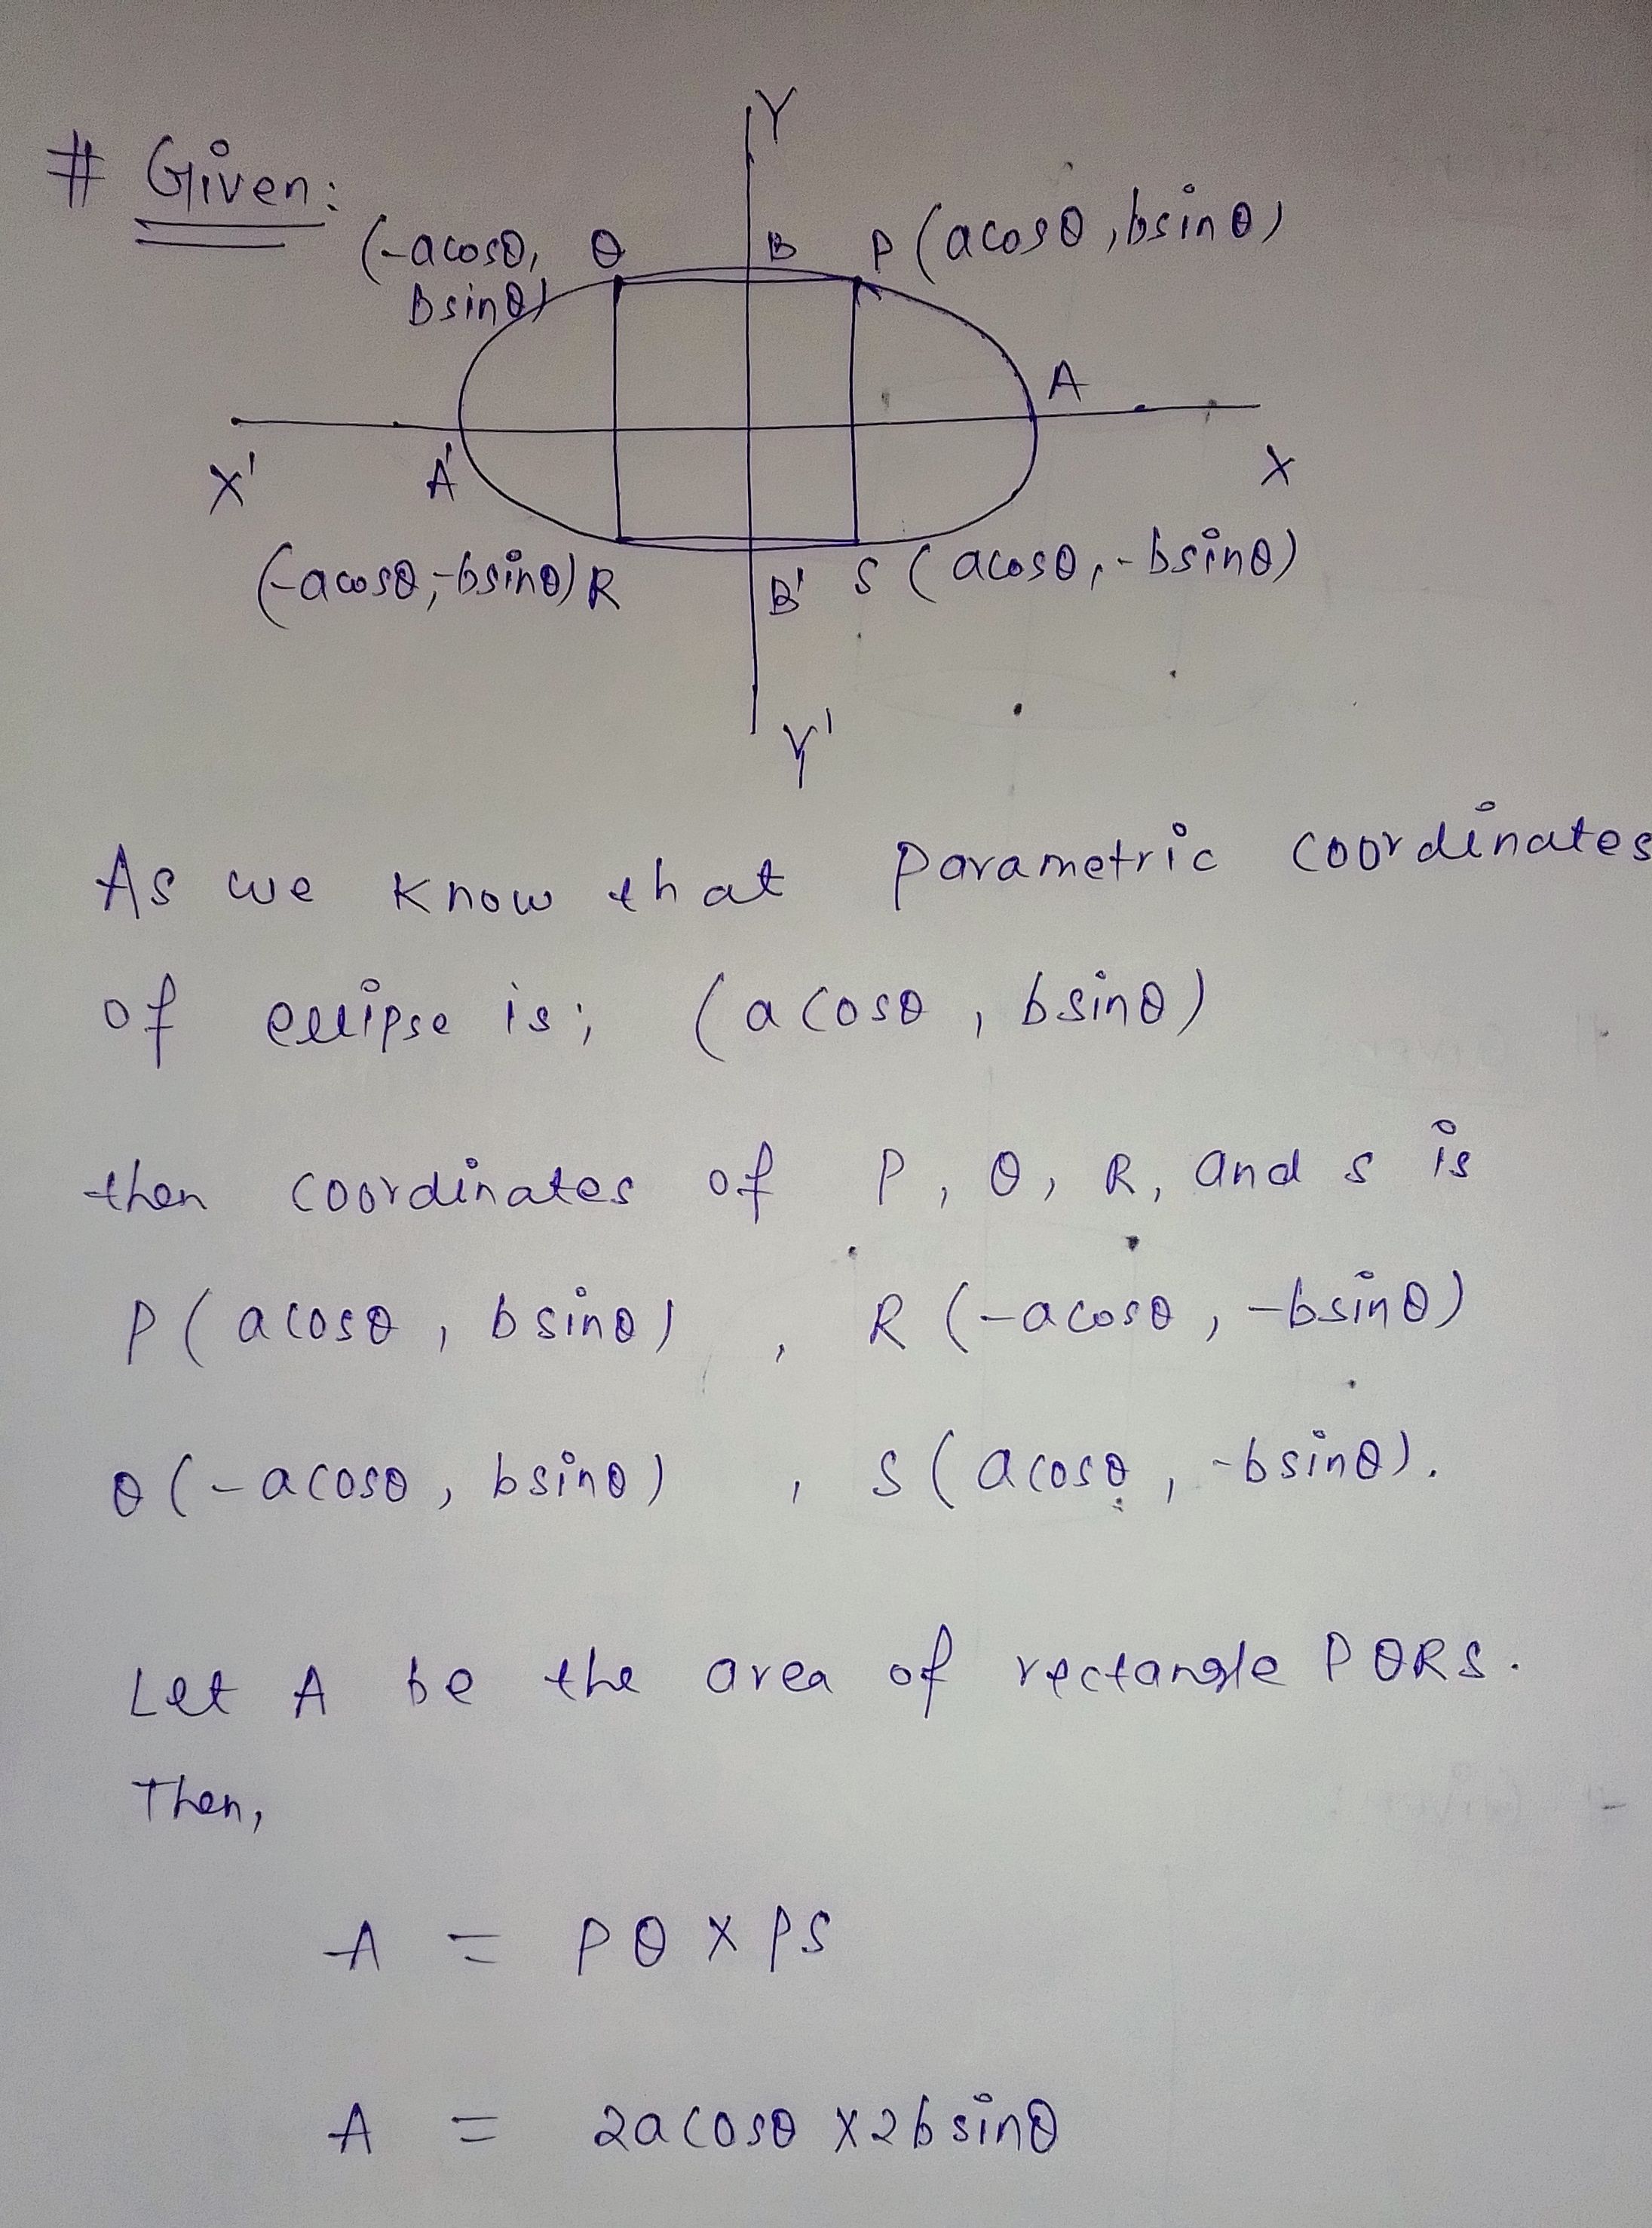 Y
# Given:
(-acosθ, Q B P (acosθ, bsinθ)
Bsinθ)
A
X' A' X
(-acosθ, -bsinθ) R B' S (acosθ, -bsinθ)
Y'
As we know that parametric coordinates
of ellipse is; (acosθ, bsinθ)
then coordinates of P, Q, R, and S is
P(acosθ, bsinθ) , R (-acosθ, -bsinθ)
Q(-acosθ, bsinθ) , S(acosθ, -bsinθ).
Let A be the area of rectangle PQRS.
Then,
A = PQ × PS
A = 2acosθ × 2bsinθ